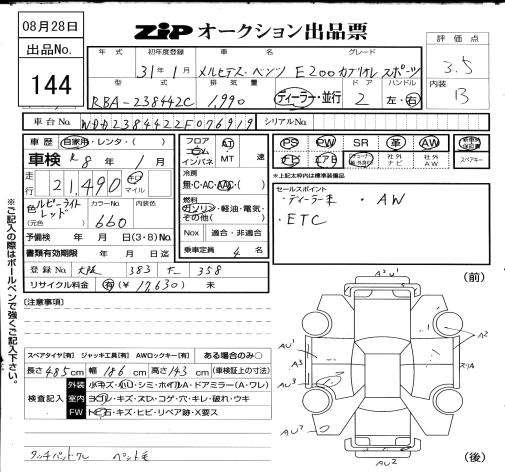 08月28日
出品No.
144
ZIP オークション出品票
評価点
3.5
内装
B
年式 初年度登録 車名 グレード
31年1月 メルセデス・ベンツ E200カブリオレ スポーツ
型式 排気量 ドア ハンドル
RBA-238442C 1,990 ディーラー・並行 2 左・右
車台No. WDD2384422F076919 シリアルNo.
車歴 自家用・レンタ・( )
車検 R8年1月
走行 21,490 キロ マイル
色(元色) ルビーライトレッド カラーNo. 660 内装色
予備検 年 月 日(3・8)No.
書類有効期限 年 月 日迄
登録No. 大阪 383 358
リサイクル料金 有(¥17,630) 未
フロア コラム インパネ AT MT 速
冷房
無・C・AC・AAC・( )
燃料
ガソリン・軽油・電気・その他( )
Nox 適合・非適合
乗車定員 4名
PS PW SR 革 AW
ナビ エアB 社外ナビ 社外AW スペアキー
*上記枠内は標準装備品
セールスポイント
・ディーラー車 ・AW
・ETC
※ご記入の際はボールペンで強くご記入下さい。
〔注意事項〕
スペアタイヤ[有] ジャッキ工具[有] AWロックキー[有] ある場合のみ○
長さ485cm 幅186cm 高さ143cm(車検証上の寸法)
検査記入
外装 小キズ・小凹・シミ・ホイルA・ドアミラー(A・ワレ)
室内 ヨゴレ・キズ・スレ・コゲ・穴・キレ・破れ・ウキ
FW トビ石・キズ・ヒビ・リペア跡・X要ス
タッチパッドワレ ペット毛
(前)
A2 U1
AU1
A3
AU3
AU2
A2
スリA
AU2
(後)